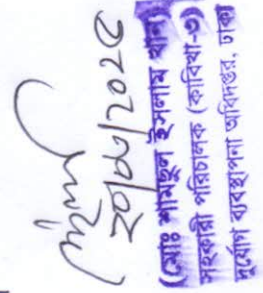 ২০/০৩/২০২৫
(মোঃ শামছুল ইসলাম খান)
সহকারী পরিচালক (কাবিখা-৩)
দুর্যোগ ব্যবস্থাপনা অধিদপ্তর, ঢাকা